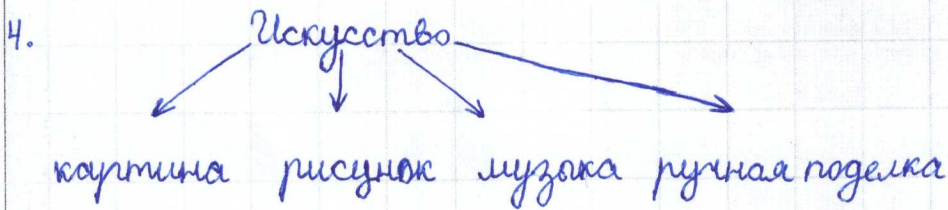 4. Искусство
картина рисунок музыка ручная поделка